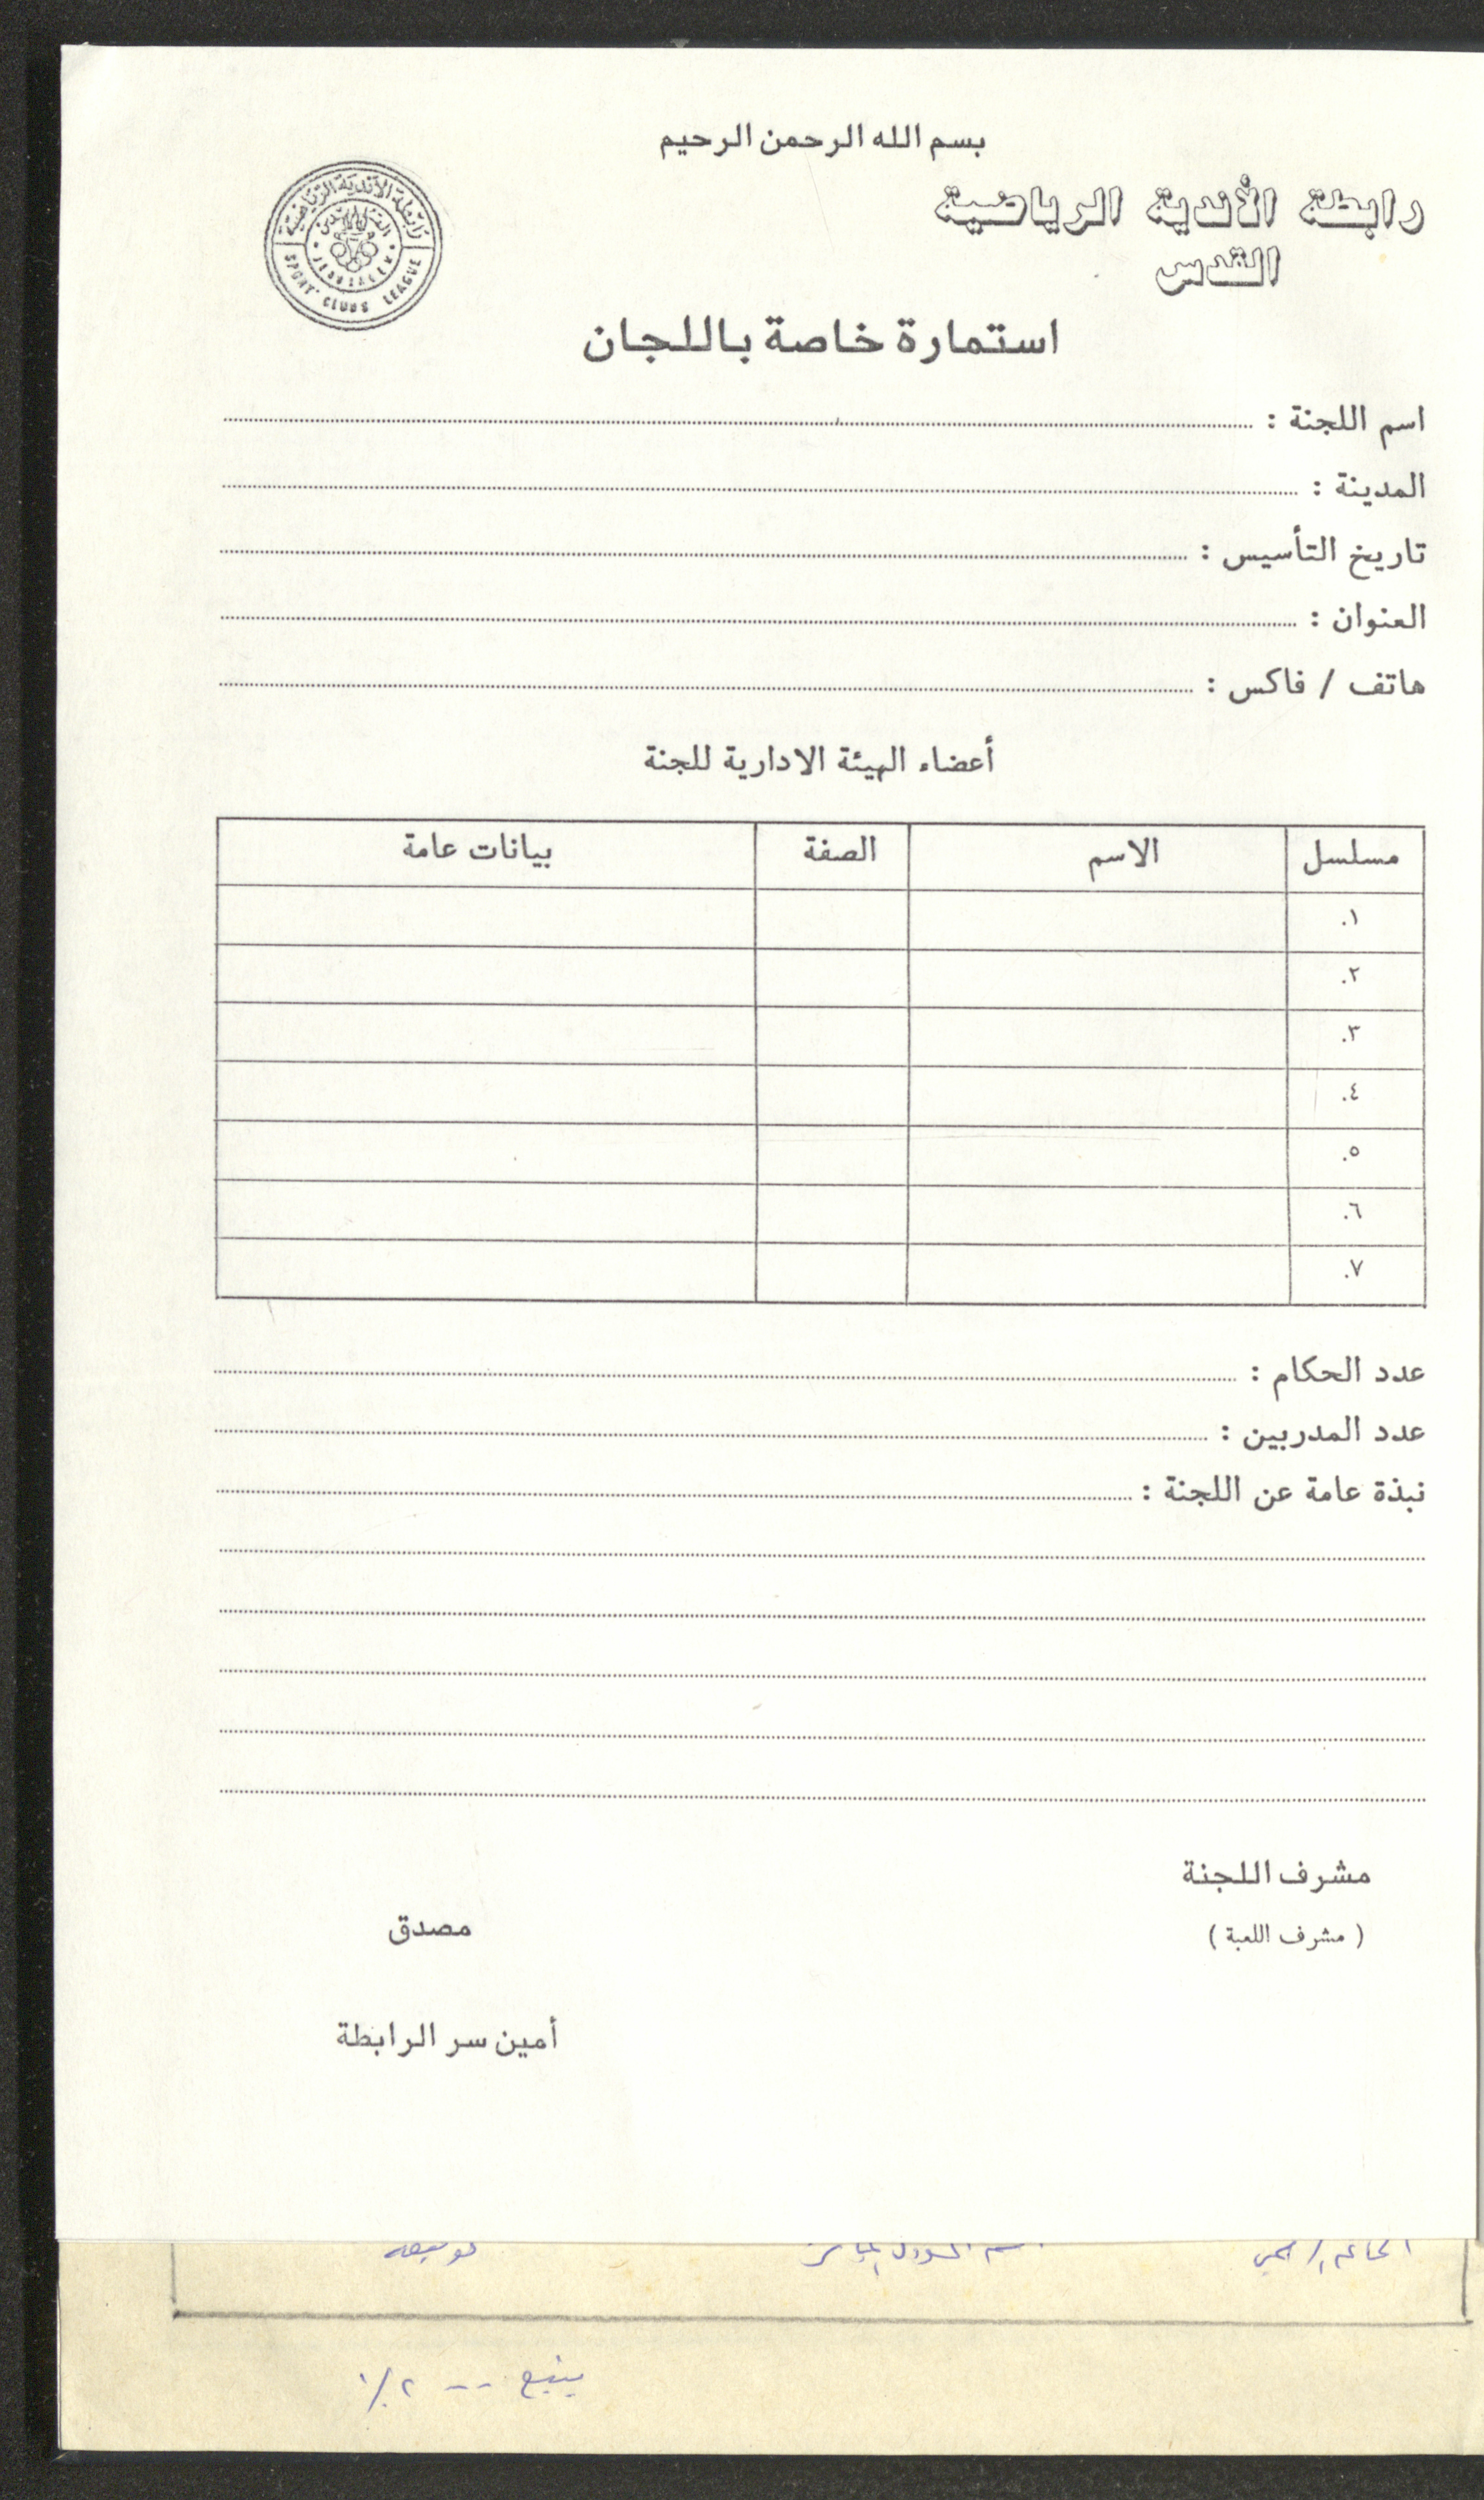 بسم الله الرحمن الرحيم
رابطة الأندية الرياضية
القدس
رابطة الأندية الرياضية
القدس
JERUSALEM
SPORT CLUBS LEAGUE
استمارة خاصة باللجان
اسم اللجنة :
المدينة :
تاريخ التأسيس :
العنوان :
هاتف / فاكس :
أعضاء الهيئة الادارية للجنة
مسلسل الاسم الصفة بيانات عامة
١.
٢.
٣.
٤.
٥.
٦.
٧.
عدد الحكام :
عدد المدربين :
نبذة عامة عن اللجنة :
مشرف اللجنة
( مشرف اللعبة )
مصدق
أمين سر الرابطة
يتبع -- ٢